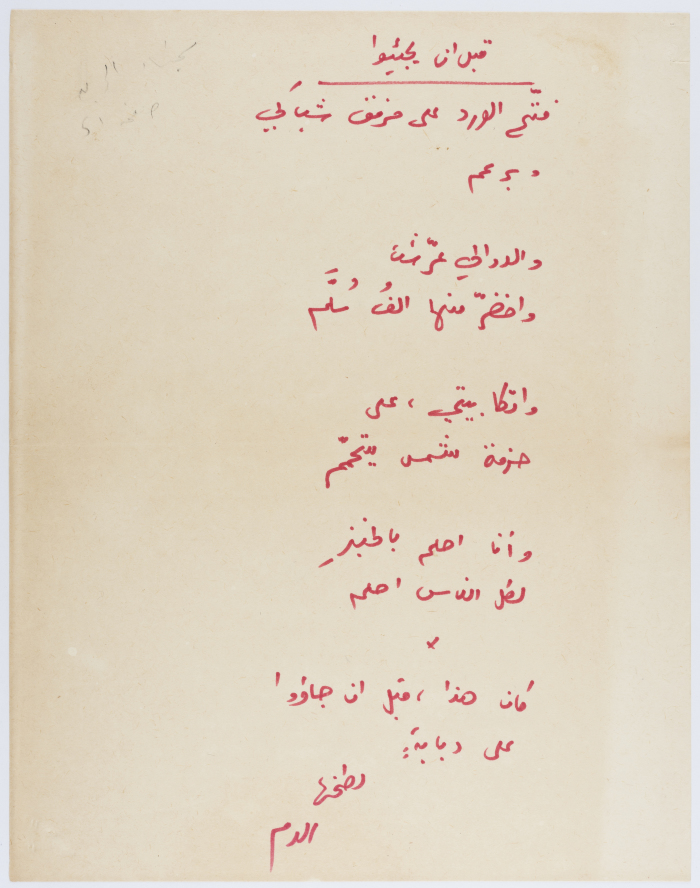 قبل ان يجيئوا
فتّح الورد على مرفق شباكي
وبرعم
والدوالي عرّشت
واخضرّ منها الفُ سُلَّم
واتكا بيتي ، على
حزمة شمس يتحمّم
وأنا احلم بالخبزِ
لكل الناس احلم
×
كان هذا ، قبل ان جاؤوا
على دبابةٍ
لطخها
الدم